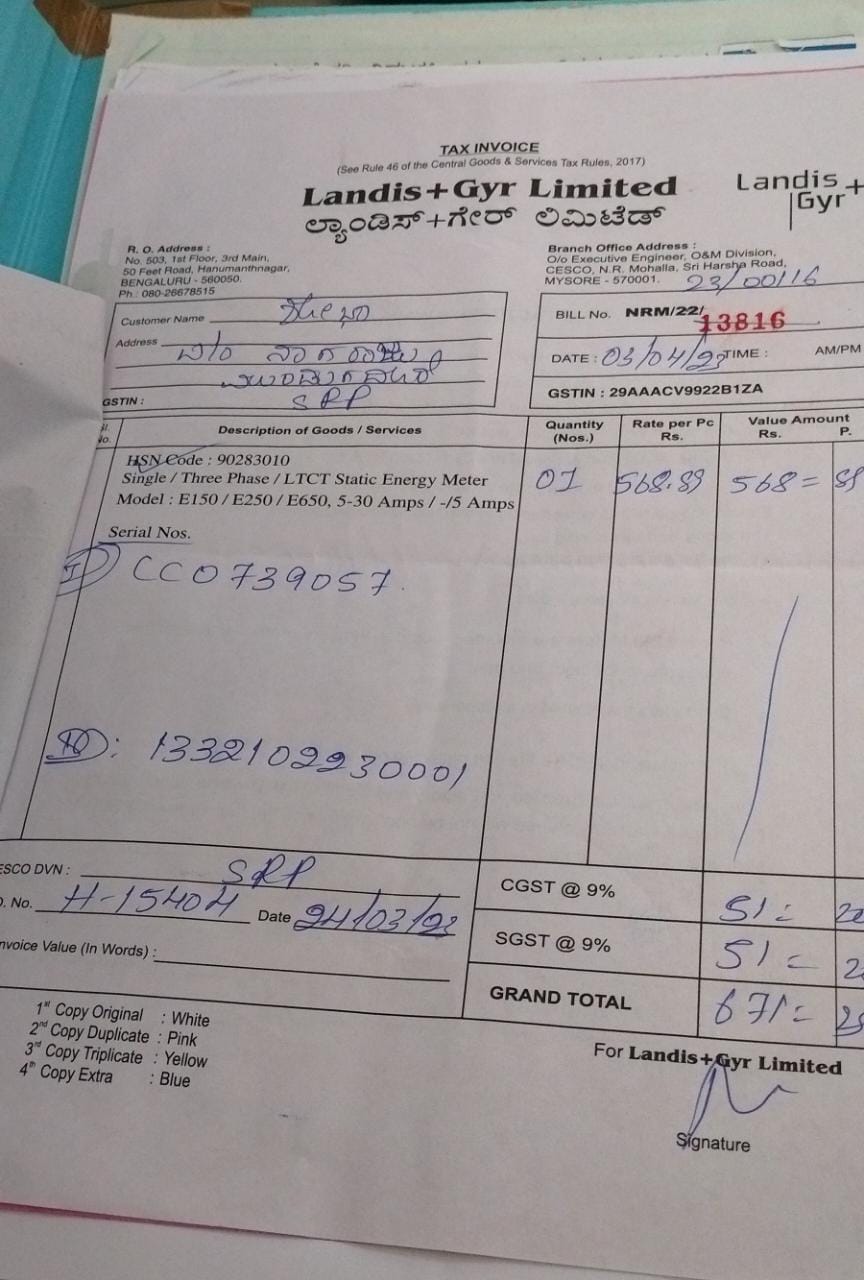 TAX INVOICE
(See Rule 46 of the Central Goods & Services Tax Rules, 2017)
Landis+Gyr Limited
ಲ್ಯಾಂಡಿಸ್+ಗೇರ್ ಲಿಮಿಟೆಡ್
Landis+
Gyr
R. O. Address :
No. 503, 1st Floor, 3rd Main,
50 Feet Road, Hanumanthnagar,
BENGALURU - 560050.
Ph.: 080-26678515
Branch Office Address :
O/o Executive Engineer, O&M Division,
CESCO, N.R. Mohalla, Sri Harsha Road,
MYSORE - 570001.
23/00116
Customer Name
Address
SRP
GSTIN :
BILL No. NRM/22/ 13816
DATE : 03/04/23 TIME : AM/PM
GSTIN : 29AAACV9922B1ZA
No. Description of Goods / Services Quantity (Nos.) Rate per Pc Rs. Value Amount Rs. P.
HSN Code : 90283010
Single / Three Phase / LTCT Static Energy Meter 01 568.89 568=
Model : E150 / E250 / E650, 5-30 Amps / -/5 Amps
Serial Nos.
CC0739057
: 1332102230001
ESCO DVN : SRP
No. H-15404 Date 24/03/23
nvoice Value (In Words) :
CGST @ 9% 51=
SGST @ 9% 51=
GRAND TOTAL 671=
1st Copy Original : White
2nd Copy Duplicate : Pink
3rd Copy Triplicate : Yellow
4th Copy Extra : Blue
For Landis+Gyr Limited
Signature